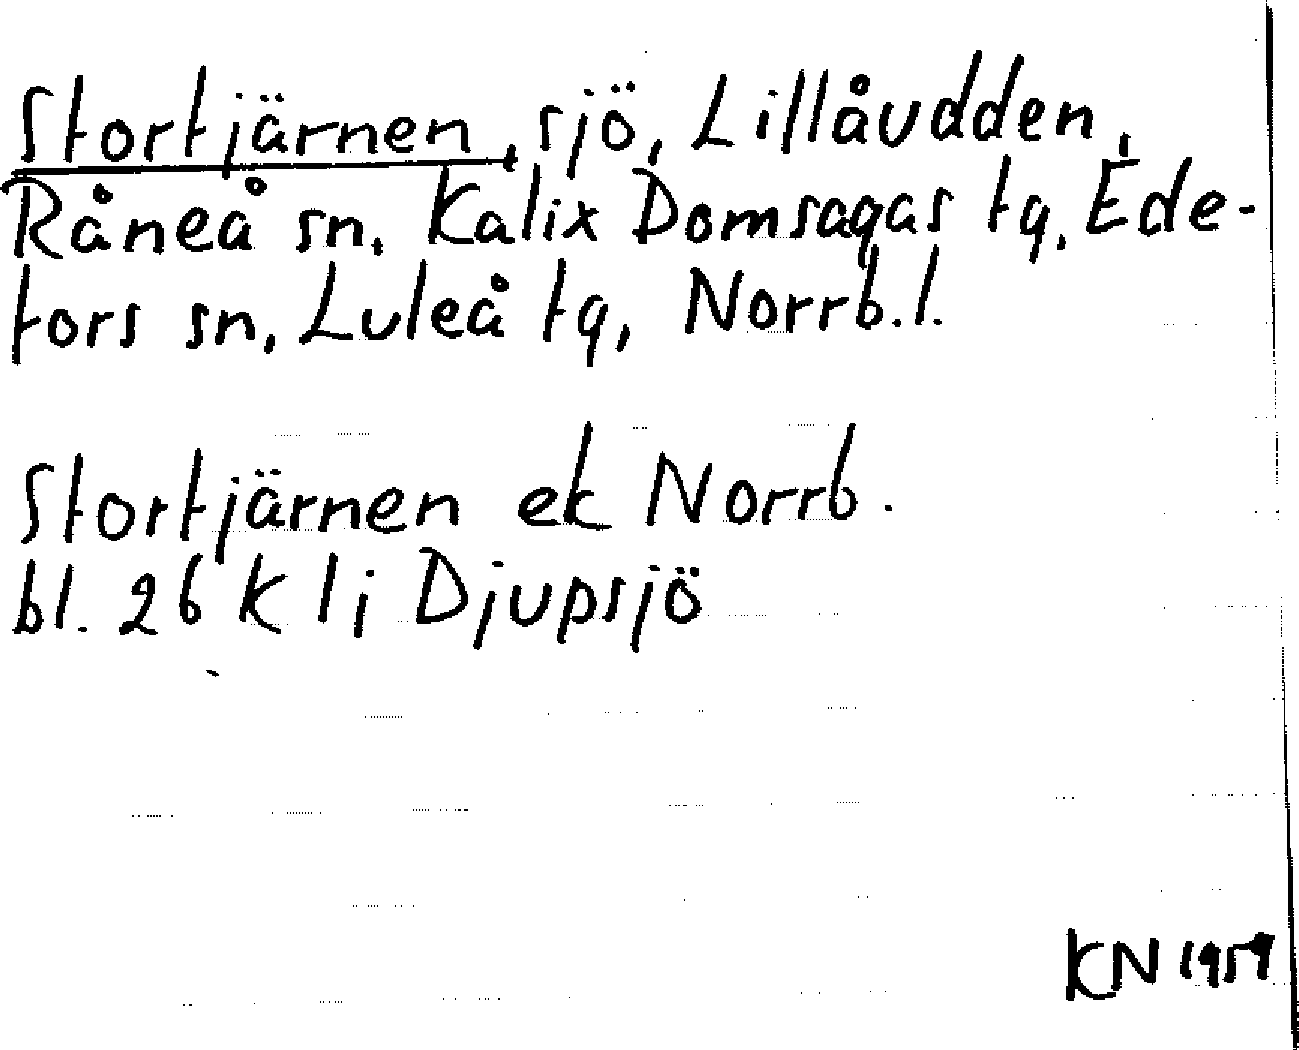 Stortjärnen, sjö, Lillåudden,
Råneå sn, Kalix Domsagas tg, Ede-
fors sn, Luleå tg, Norrb.l.
Stortjärnen ek Norrb.
bl. 26 K l i Djupsjö
KN 1959